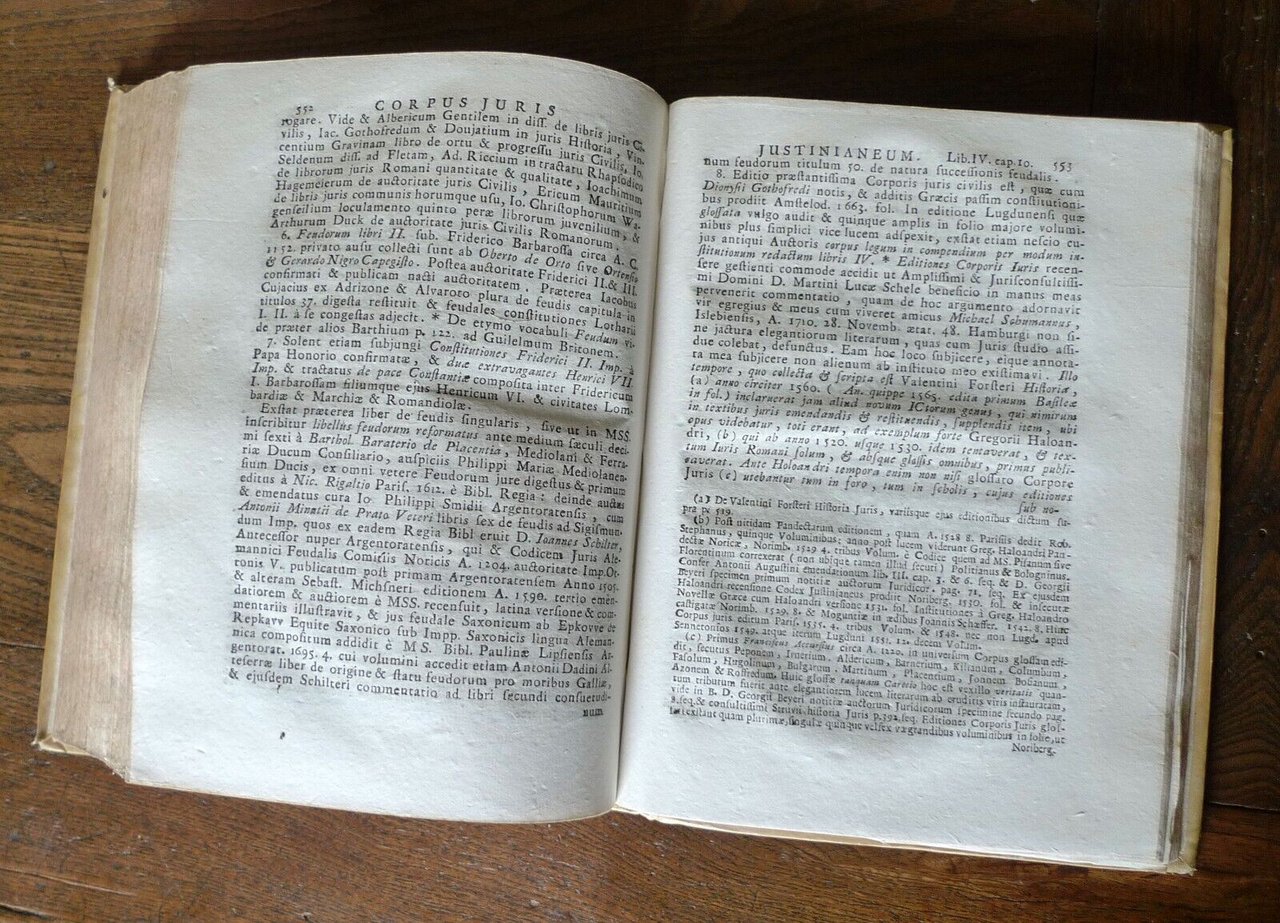 552 CORPUS JURIS
rogare. Vide & Albericum Gentilem in diss. de libris juris Ci-
vilis, Iac. Gothofredum & Doujatium in juris Historia, Vin-
centium Gravinam libro de ortu & progressu juris Civilis, Io.
Seldenum diss. ad Fletam, Ad. Riccium in tractatu Rhapsodico
de librorum juris Romani quantitate & qualitate, Ioachimum
Hagemeierum de auctoritate juris Civilis, Ericum Mauritium
de libris juris communis horumque usu, Io. Christophorum Wa-
genseilium loculamento quinto peræ librorum juvenilium, &
Arthurum Duck de auctoritate juris Civilis Romanorum.
6. Feudorum libri II. sub. Friderico Barbarossa circa A. C.
1152. privato ausu collecti sunt ab Oberto de Orto sive Ortensio
& Gerardo Nigro Capegisto. Postea auctoritate Friderici II. & III.
confirmati & publicam nacti auctoritatem. Præterea Iacobus
Cujacius ex Adrizone & Alvaroto plura de feudis capitula in
titulos 37. digesta restituit & feudales constitutiones Lotharii
I. II. à se congestas adjecit. * De etymo vocabuli Feudum vi-
de præter alios Barthium p. 122. ad Guilelmum Britonem.
7. Solent etiam subjungi Constitutiones Friderici II. Imp. à
Papa Honorio confirmatæ, & duæ extravagantes Henrici VII
Imp. & tractatus de pace Constantiæ composita inter Fridericum
I. Barbarossam filiumque ejus Henricum VI. & civitates Lom-
bardiæ & Marchiæ & Romandiolæ.
Exstat præterea liber de feudis singularis, sive ut in MSS.
inscribitur libellus feudorum reformatus ante medium sæculi deci-
mi sexti à Barthol. Baraterio de Placentia, Mediolani & Ferra-
riæ Ducum Consiliario, auspiciis Philippi Mariæ Mediolanen-
sium Ducis, ex omni vetere Feudorum jure digestus & primum
editus à Nic. Rigaltio Paris. 1612. è Bibl. Regia: deinde auctus
& emendatus cura Io. Philippi Smidii Argentoratensis, cum
Antonii Minutii de Prato Veteri libris sex de feudis ad Sigismun-
dum Imp. quos ex eadem Regia Bibl eruit D. Ioannes Schilter,
Antecessor nuper Argentoratensis, qui & Codicem Juris Ale-
mannici Feudalis Comitiis Noricis A. 1204. auctoritate Imp. Ot-
tonis V. publicatum post primam Argentoratensem Anno 1505.
& alteram Sebast. Michsneri editionem A. 1590. tertio emen-
datiorem & auctiorem è MSS. recensuit, latina versione & com-
mentariis illustravit, & jus feudale Saxonicum ab Epkovve de
Repkavv Equite Saxonico sub Impp. Saxonicis lingua Aleman-
nica compositum addidit è MS. Bibl. Paulinæ Lipsiensis Ar-
gentorat. 1695. 4. cui volumini accedit etiam Antonii Dadini Al-
teserræ liber de origine & statu feudorum pro moribus Galliæ,
& ejusdem Schilteri commentatio ad libri secundi consuetudi-
num
JUSTINIANEUM. Lib. IV. cap. 10. 553
num feudorum titulum 50. de natura successionis feudalis.
8. Editio præstantissima Corporis juris civilis est, quæ cum
Dionysii Gothofredi notis, & additis Græcis passim constitutioni-
bus prodiit Amstelod. 1663. fol. In editione Lugdunensi quæ
glossata vulgo audit & quinque amplis in folio majore volumi-
nibus plus simplici vice lucem adspexit, exstat etiam nescio cu-
jus antiqui Auctoris corpus legum in compendium per modum in-
stitutionum redactum libris IV. * Editiones Corporis Iuris recen-
sere gestienti commode accidit ut Amplissimi & Jurisconsultissi-
mi Domini D. Martini Lucæ Schele beneficio in manus meas
pervenerit commentatio, quam de hoc argumento adornavit
vir egregius & meus cum viveret amicus Michael Schumannus,
Islebiensis, A. 1710. 28. Novemb. ætat. 48. Hamburgi non si-
ne jactura elegantiorum literarum, quas cum Juris studio assi-
due colebat, defunctus. Eam hoc loco subjicere, eique annota-
ta mea subjicere non alienum ab instituto meo existimavi. Illo
tempore, quo collecta & scripta est Valentini Forsteri Historia,
(a) anno circiter 1560. ( An. quippe 1565. edita primum Basileæ
in fol.) inclaruerat jam aliud novum ICtorum genus, qui nimirum
in textibus juris emendandis & restituendis, supplendis item, ubi
opus videbatur, toti erant, ad exemplum forte Gregorii Haloan-
dri, (b) qui ab anno 1520. usque 1530. idem tentaverat, & tex-
tum Iuris Romani solum, & absque glossis omnibus, primus publi-
caverat. Ante Holoandri tempora enim non nisi glossato Corpore
Juris (c) utebantur tum in foro, tum in scholis, cujus editiones
sub no-
(a) De Valentini Forsteri Historia Juris, variisque ejus editionibus dictum su-
pra p. 519.
(b) Post nitidam Pandectarum editionem, quam A. 1528 8. Parisiis dedit Rob.
Stephanus, quinque Voluminibus; anno post lucem viderunt Greg. Haloandri Pan-
dectæ Noricæ, Norimb. 1529 4. tribus Volum. è Codice quem ad MS. Pisanum sive
Florentinum correxerat ( non ubique tamen illud secuti ) Politianus & Bologninus.
Confer Antonii Augustini emendationum lib III. cap. 3. & 6. seq. & D. Georgii
Beyeri specimen primum notitiæ auctorum Juridicor. pag. 71. seq. Ex ejusdem
Haloandri recensione Codex Justinianeus prodiit Noriberg. 1530. fol. & insecutæ
Novellæ Græce cum Haloandri versione 1531. fol. Institutiones à Greg. Haloandro
castigatæ Norimb. 1529. 8. & Moguntiæ in ædibus Joannis Schæffer. 1542. 8. Hinc
Corpus juris editum Paris. 1535. 4. tribus Volum. & 1548. nec non Lugd. apud
Sennetonios 1549. atque iterum Lugduni 1551. 12. decem Volum.
(c) Primus Franciscus Accursius circa A. 1220. in universum Corpus glossam edi-
dit, secutus Peponem, Irnerium, Aldericum, Barnerium, Kilianum, Columbum,
Fasolum, Hugolinum, Bulgarum, Martinum, Placentium, Jonnem Bosianum,
Azonem & Roffredum. Huic glossæ tanquam Carocio hoc est vexillo veritatis quan-
tum tribuitum fuerit ante elegantiorem lucem literarum ab eruditis viris instauratam,
vide in B. D. Georgii Beyeri notitiæ auctorum Juridicorum specimine secundo pag.
8. seq. & consultissimi Struvii historia Juris p. 392. seq. Editiones Corporis Juris glos-
sati exstant quam plurimæ, singulæ quinque vel sex prægrandibus voluminibus in folio, ut
Noriberg.